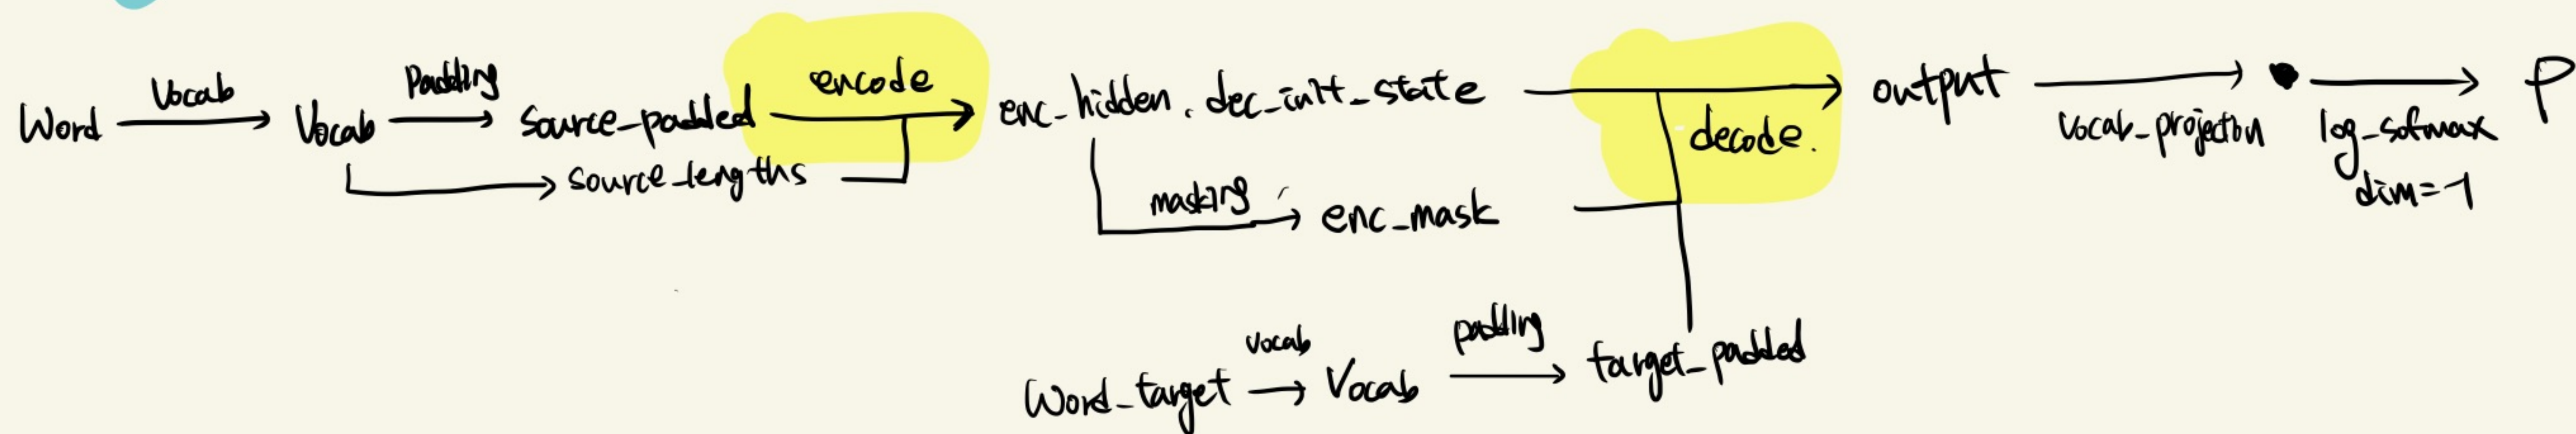 Word Vocab Vocab Padding source_padded encode enc_hidden, dec_init_state decode. output vocab_projection log_sofmax dim=-1 P
source_lengths
masking enc_mask
Word_target vocab Vocab padding target_padded